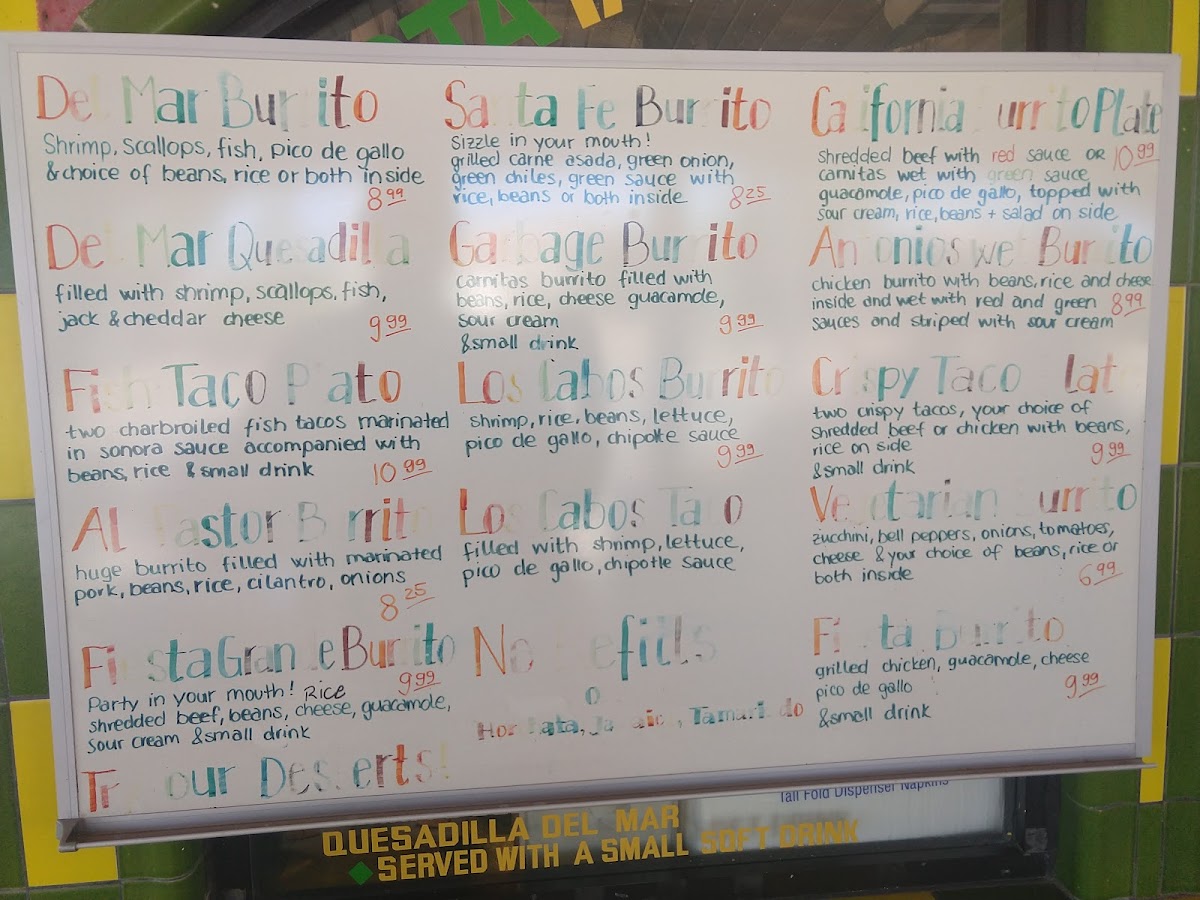 TA
Del Mar Burrito
Shrimp, scallops, fish, pico de gallo
& choice of beans, rice or both inside
8.99
Del Mar Quesadilla
filled with shrimp, scallops, fish,
jack & cheddar cheese
9.99
Fish Taco Plato
two charbroiled fish tacos marinated
in sonora sauce accompanied with
beans, rice & small drink
10.99
AL Pastor Burrito
huge burrito filled with marinated
pork, beans, rice, cilantro, onions
8.25
Fiesta Grande Burrito
9.99
Party in your mouth! Rice
shredded beef, beans, cheese, guacamole,
sour cream & small drink
Try our Desserts!
Santa Fe Burrito
Sizzle in your mouth!
grilled carne asada, green onion,
green chiles, green sauce with
rice, beans or both inside
8.25
Garbage Burrito
carnitas burrito filled with
beans, rice, cheese guacamole,
sour cream
9.99
& small drink
Los Cabos Burrito
shrimp, rice, beans, lettuce,
pico de gallo, chipotle sauce
9.99
Los Cabos Taco
filled with shrimp, lettuce,
pico de gallo, chipotle sauce
No Refills
Horchata, Jamaica, Tamarindo
California Burrito Plate
shredded beef with red sauce OR 10.99
carnitas wet with green sauce
guacamole, pico de gallo, topped with
sour cream, rice, beans + salad on side
Antonios wet Burrito
chicken burrito with beans, rice and cheese
inside and wet with red and green 8.99
sauces and striped with sour cream
Crispy Taco Plate
two crispy tacos, your choice of
shredded beef or chicken with beans,
rice on side
9.99
& small drink
Vegetarian Burrito
zucchini, bell peppers, onions, tomatoes,
cheese & your choice of beans, rice or
both inside
6.99
Fiesta Burrito
grilled chicken, guacamole, cheese
pico de gallo
9.99
& small drink
Tall Fold Dispenser Napkins
QUESADILLA DEL MAR
SERVED WITH A SMALL SOFT DRINK